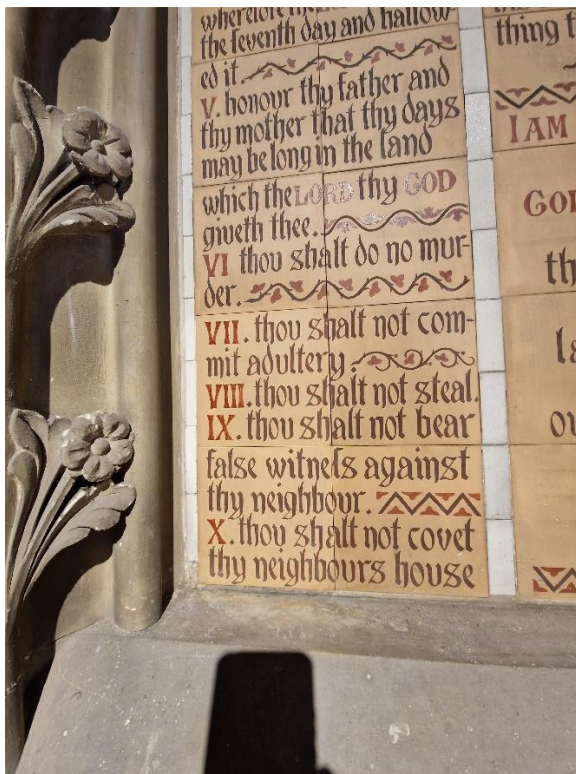 wherefore the
the seventh day and hallow-
ed it.
V. honour thy father and
thy mother that thy days
may be long in the land
which the LORD thy GOD
giveth thee.
VI thou shalt do no mur-
der.
VII. thou shalt not com-
mit adultery.
VIII. thou shalt not steal.
IX. thou shalt not bear
false witneſs against
thy neighbour.
X. thou shalt not covet
thy neighbours house
thing
I AM
GOD
th
la
ou